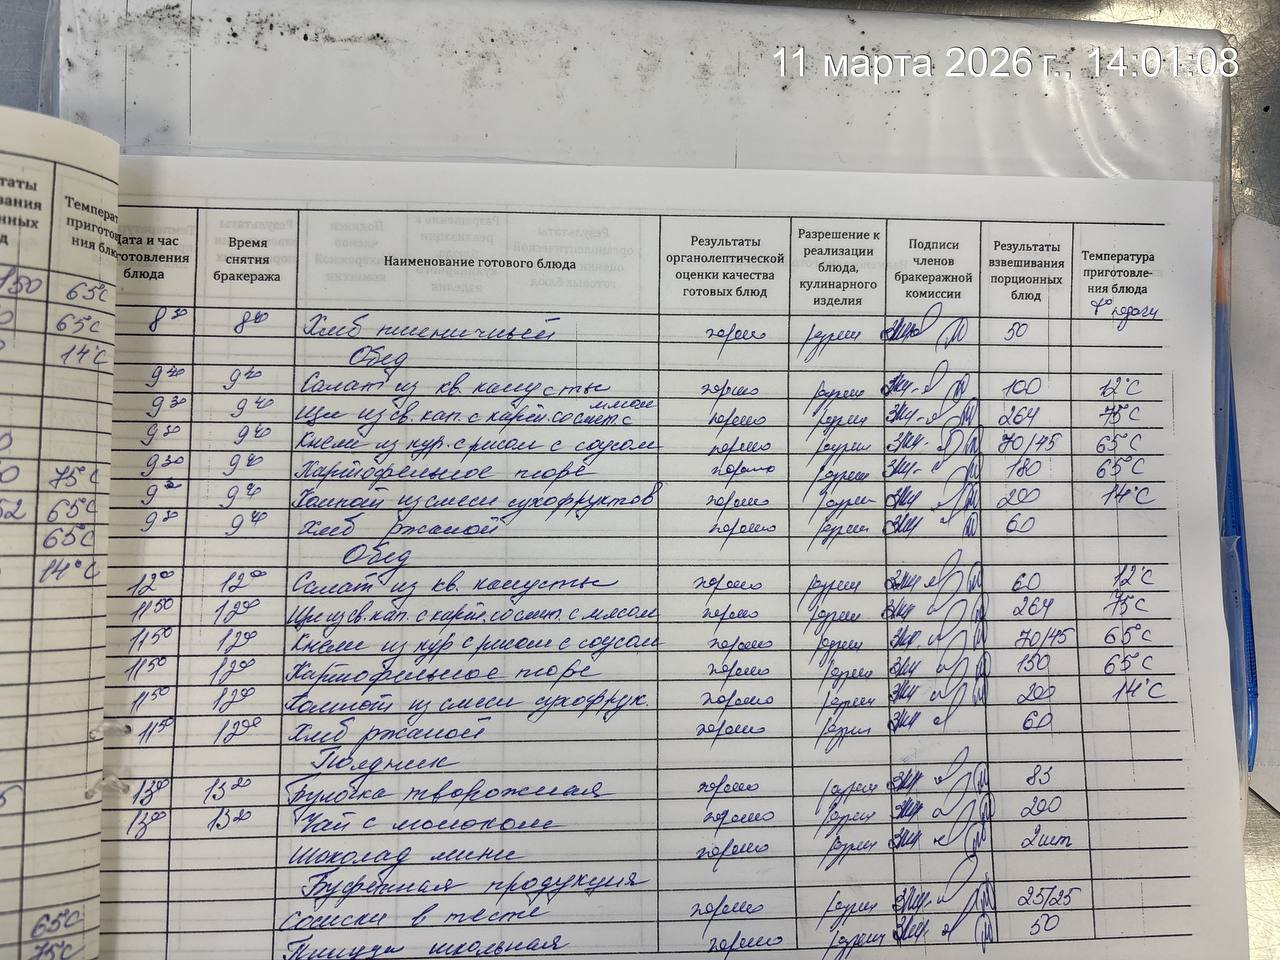 11 марта 2026 г., 14:01:08
Дата и час готовления блюда | Время снятия бракеража | Наименование готового блюда | Результаты органолептической оценки качества готовых блюд | Разрешение к реализации блюда, кулинарного изделия | Подписи членов бракеражной комиссии | Результаты взвешивания порционных блюд | Температура приготовле-ния блюда
t° подачи
8 30 | 8 40 | Хлеб пшеничный | хорошо | разреш | 50
Обед
9 40 | 9 40 | Салат из кв. капусты | хорошо | разреш | 100 | 12°С
9 30 | 9 40 | Щи из св. кап. с карт. со смет. с мясом | хорошо | разреш | 264 | 75°С
9 30 | 9 40 | Кнели из кур. с рисом с соусом | хорошо | разреш | 70/45 | 65°С
9 30 | 9 40 | Картофельное пюре | хорошо | разреш | 180 | 65°С
9 30 | 9 40 | Компот из смеси сухофруктов | хорошо | разреш | 200 | 14°С
9 30 | 9 40 | Хлеб ржаной | хорошо | разреш | 60
Обед
12 00 | 12 00 | Салат из кв. капусты | хорошо | разреш | 60 | 12°С
11 50 | 12 00 | Щи из св. кап. с карт. со смет. с мясом | хорошо | разреш | 264 | 75°С
11 50 | 12 00 | Кнели из кур с рисом с соусом | хорошо | разреш | 70/45 | 65°С
11 50 | 12 00 | Картофельное пюре | хорошо | разреш | 150 | 65°С
11 50 | 12 00 | Компот из смеси сухофрук. | хорошо | разреш | 200 | 14°С
11 50 | 12 00 | Хлеб ржаной | хорошо | разреш | 60
Полдник
13 00 | 13 20 | Булочка творожная | хорошо | разреш | 83
13 00 | 13 20 | Чай с молоком | хорошо | разреш | 200
Шоколад мини | хорошо | разреш | 2шт
Буфетная продукция
Сосиски в тесте | хорошо | разреш | 25/25
Пицца школьная | хорошо | разреш | 50